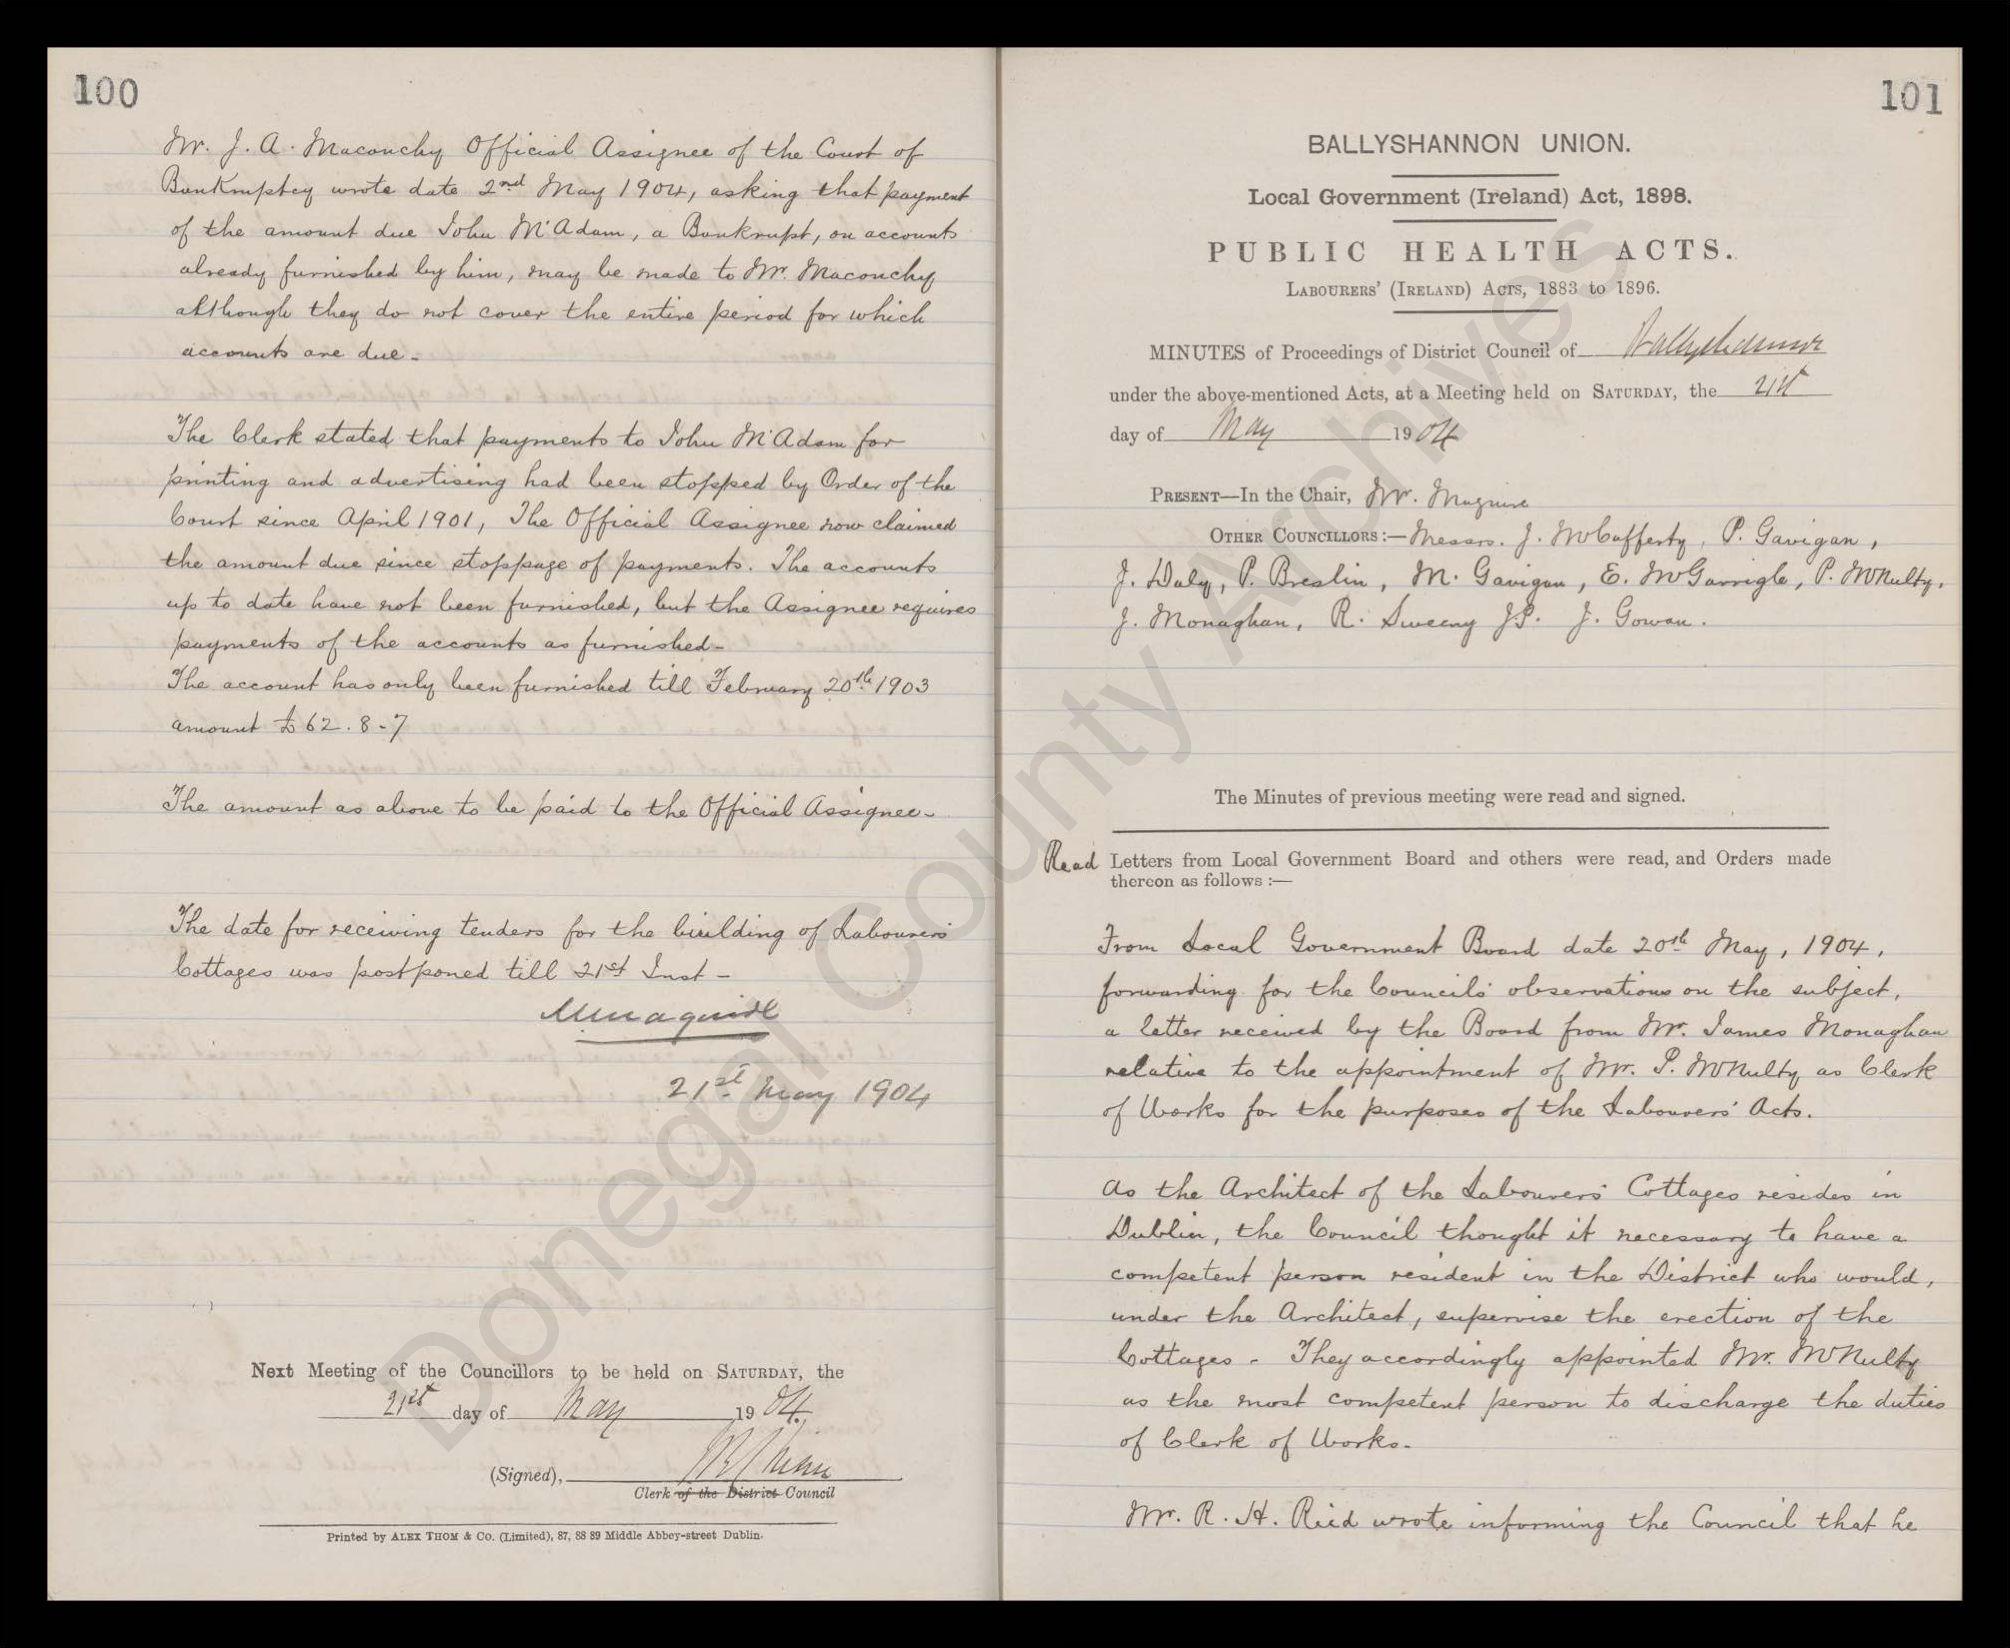 100
Mr. J. A. Maconchy Official Assignee of the Court of
Bankruptcy wrote date 2nd May 1904, asking that payment
of the amount due John McAdam, a Bankrupt, on accounts
already furnished by him, may be made to Mr. Maconchy
although they do not cover the entire period for which
accounts are due.
The Clerk stated that payments to John McAdam for
printing and advertising had been stopped by Order of the
Court since April 1901, The Official Assignee now claimed
the amount due since stoppage of payments. The accounts
up to date have not been furnished, but the Assignee requires
payments of the accounts as furnished.
The account has only been furnished till February 20th 1903
amount £62.8-7
The amount as above to be paid to the Official Assignee.
The date for receiving tenders for the building of Labourers'
Cottages was postponed till 21st Inst -
21st May 1904
Next Meeting of the Councillors to be held on SATURDAY, the
21st day of May 1904.
(Signed),
Clerk of the District Council
Printed by ALEX THOM & Co. (Limited), 87, 88 89 Middle Abbey-street Dublin.
101
BALLYSHANNON UNION.
Local Government (Ireland) Act, 1898.
PUBLIC HEALTH ACTS.
LABOURERS' (IRELAND) ACTS, 1883 to 1896.
MINUTES of Proceedings of District Council of Ballyshannon
under the above-mentioned Acts, at a Meeting held on SATURDAY, the 21st
day of May 1904
PRESENT—In the Chair, Mr. Maguire
OTHER COUNCILLORS:—Messrs. J. McCafferty, P. Gavigan,
J. Daly, P. Breslin, M. Gavigan, E. McGarrigle, P. McNulty,
J. Monaghan, R. Sweeny J.P. J. Gowan.
The Minutes of previous meeting were read and signed.
Read Letters from Local Government Board and others were read, and Orders made
thereon as follows:—
From Local Government Board date 20th May, 1904,
forwarding for the Council's observations on the subject,
a letter received by the Board from Mr. James Monaghan
relative to the appointment of Mr. P. McNulty as Clerk
of Works for the purposes of the Labourers' Acts.
As the Architect of the Labourers' Cottages resides in
Dublin, the Council thought it necessary to have a
competent person resident in the District who would,
under the Architect, supervise the erection of the
Cottages - They accordingly appointed Mr. McNulty
as the most competent person to discharge the duties
of Clerk of Works.
Mr. R. H. Reid wrote informing the Council that he
Donegal County Archives